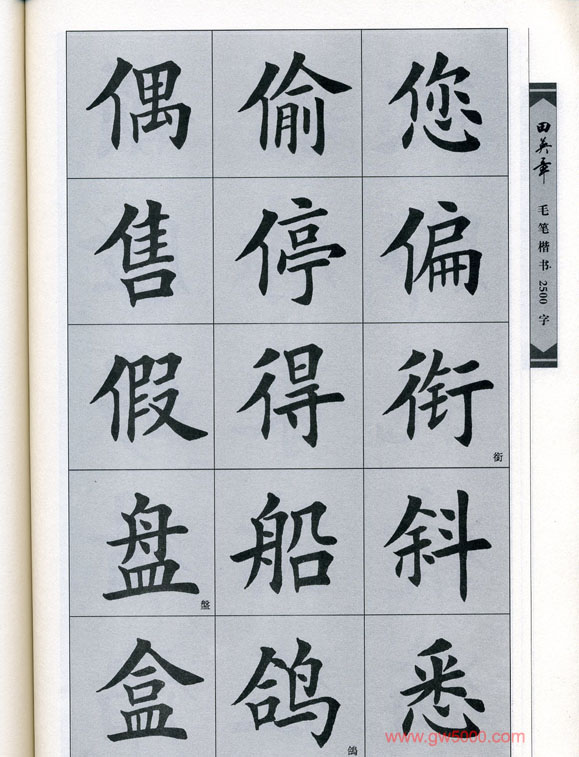 偶 偷 您
售 停 偏
假 得 衔
銜
盘 船 斜
盤
盒 鸽 悉
鴿
田英章
毛笔楷书2500字
www.gw5000.com